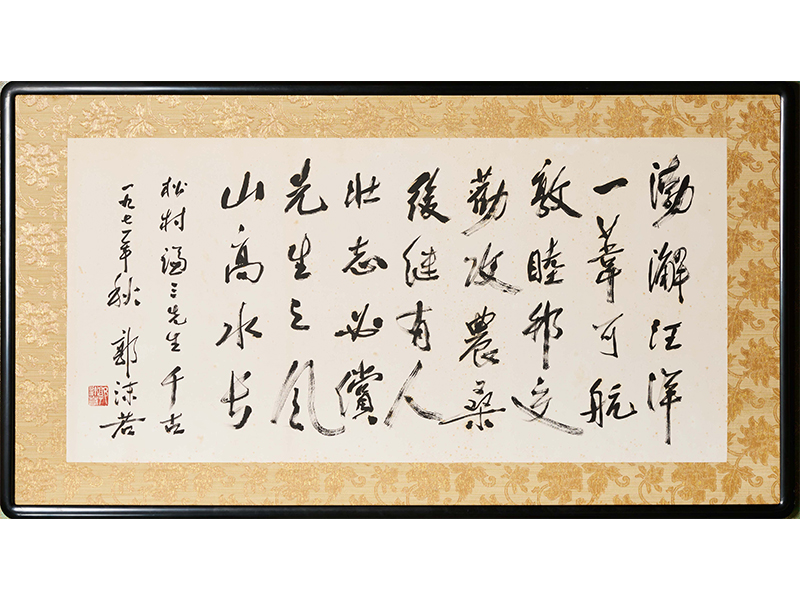 渤澥汪洋
一葦可航
敦睦邦交
勸攻農桑
後继有人
壯志必償
先生之風
山高水长
松村謙三先生千古
一九七一年秋 郭沫若